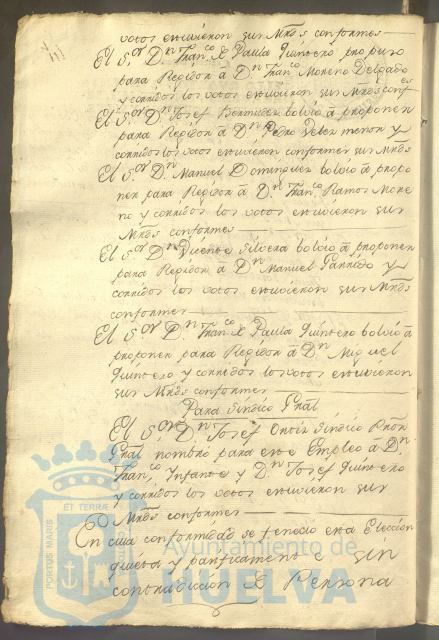 votos estuvieron sus Mrds conformes
El S.or D.n Fran.co de Paula Quintero propuso
para Regidor â D.n Fran.co Moreno Delgado
y corridos los votos estuvieron sus Mrds conf.es
El S.or D.n Josef Bermudez bolvio â proponer
para Regidor â D.n Pedro Perez menor y
corridos los votos estuvieron conformes sus Mrds
El S.or D.n Manuel Dominguez bolvio â propo
ner para Regidor â D.n Fran.co Ramos More
no y corridos los votos estuvieron sus
Mrds conformes
El S.or D.n Vicente Silvera bolvio â proponer
para Regidor â D.n Manuel Garrido y
corridos los votos estuvieron sus Mrds
conformes
El S.or D.n Fran.co de Paula Quintero bolvio â
proponer para Regidor â D.n Miguel
Quintero y corridos los votos estuvieron
sus Mrds conformes
Para Sindico Gral
El S.or D. Josef Ortiz Sindico
Gral nombró para este Empleo â D.n
Fran.co Infante y D.n Josef Quintero
y corridos los votos estuvieron sus
Mrds conformes
En cuia conformidad se fenecio esta Eleccion
quieta y pacificamente sin
contradiccion de Persona
PORTUS MARIS ET TERRAE
Ayuntamiento de
HUELVA